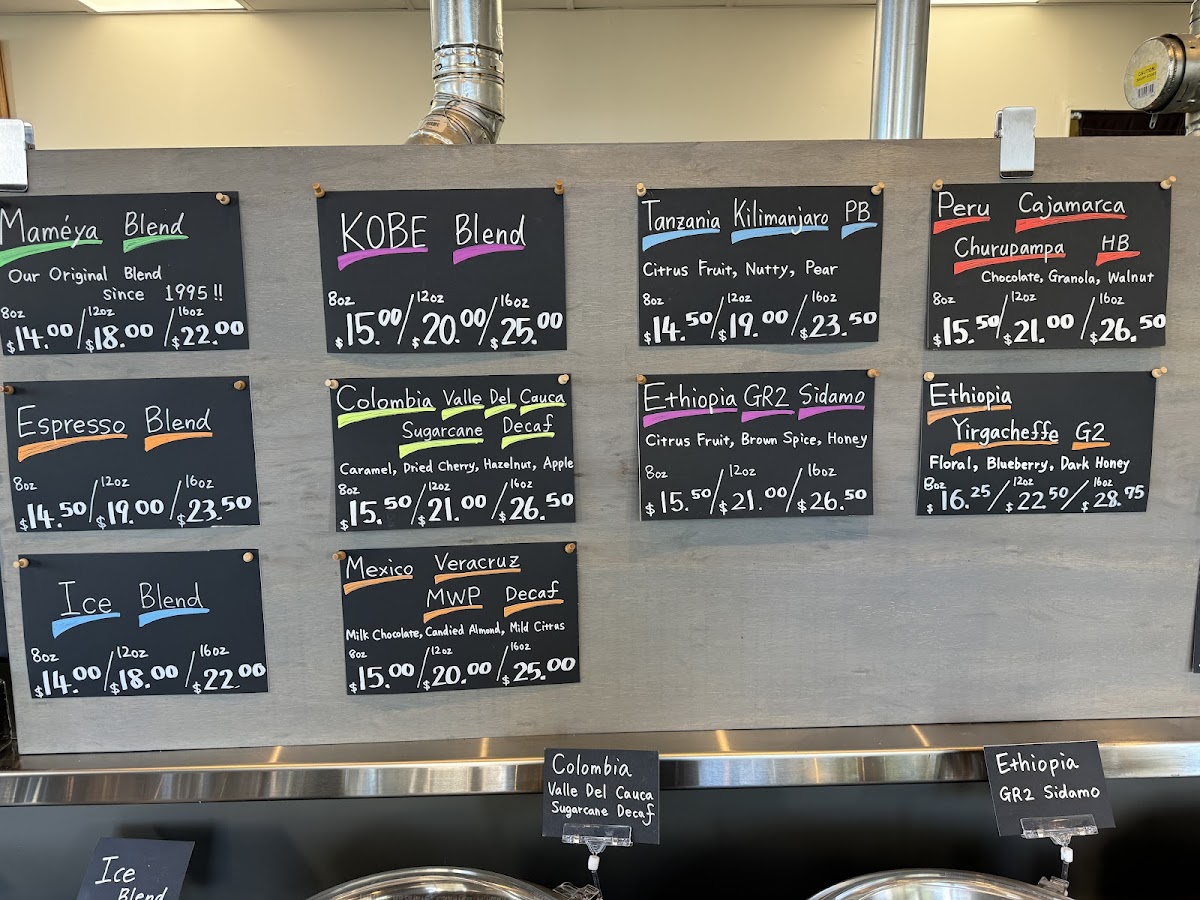 Maméya Blend
Our Original Blend
since 1995!!
8oz 12oz 16oz
$14.00/$18.00/$22.00
KOBE Blend
8oz 12oz 16oz
$15.00/$20.00/$25.00
Tanzania Kilimanjaro PB
Citrus Fruit, Nutty, Pear
8oz 12oz 16oz
$14.50/$19.00/$23.50
Peru Cajamarca
Churupampa HB
Chocolate, Granola, Walnut
8oz 12oz 16oz
$15.50/$21.00/$26.50
Espresso Blend
8oz 12oz 16oz
$14.50/$19.00/$23.50
Colombia Valle Del Cauca
Sugarcane Decaf
Caramel, Dried Cherry, Hazelnut, Apple
8oz 12oz 16oz
$15.50/$21.00/$26.50
Ethiopia GR2 Sidamo
Citrus Fruit, Brown Spice, Honey
8oz 12oz 16oz
$15.50/$21.00/$26.50
Ethiopia
Yirgacheffe G2
Floral, Blueberry, Dark Honey
8oz 12oz 16oz
$16.25/$22.50/$28.75
Ice Blend
8oz 12oz 16oz
$14.00/$18.00/$22.00
Mexico Veracruz
MWP Decaf
Milk Chocolate, Candied Almond, Mild Citrus
8oz 12oz 16oz
$15.00/$20.00/$25.00
Colombia
Valle Del Cauca
Sugarcane Decaf
Ethiopia
GR2 Sidamo
Ice
Blend